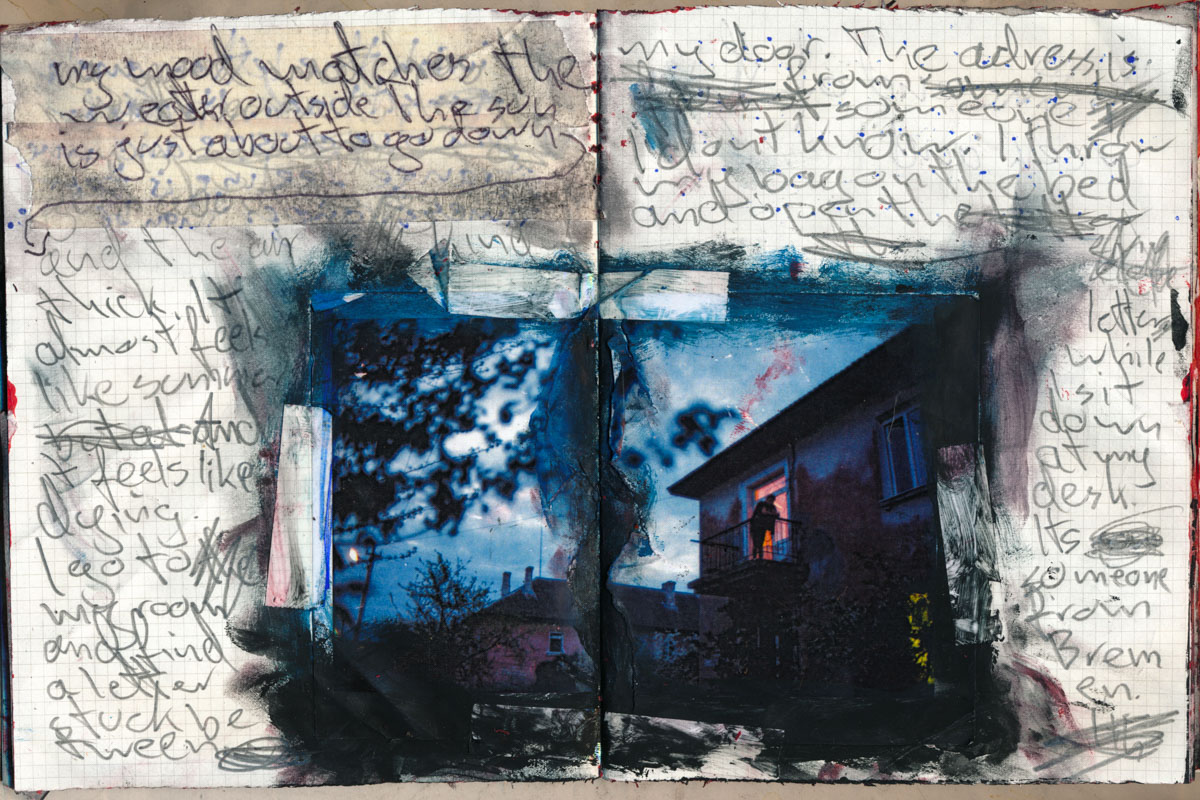 my mood matches the
weather outside the sun
is just about to go down
and the air
thick. It
almost feel
like summer
but at And
it feels like
dying.
I go to the
my room
and find
a letter
stuck be
tween
my door. The adress is
from
someone
I dont know. I throw
my bag on the bed
and open the letter
letter
while
I sit
down
at my
desk.
Its
someone
from
Brem
en.